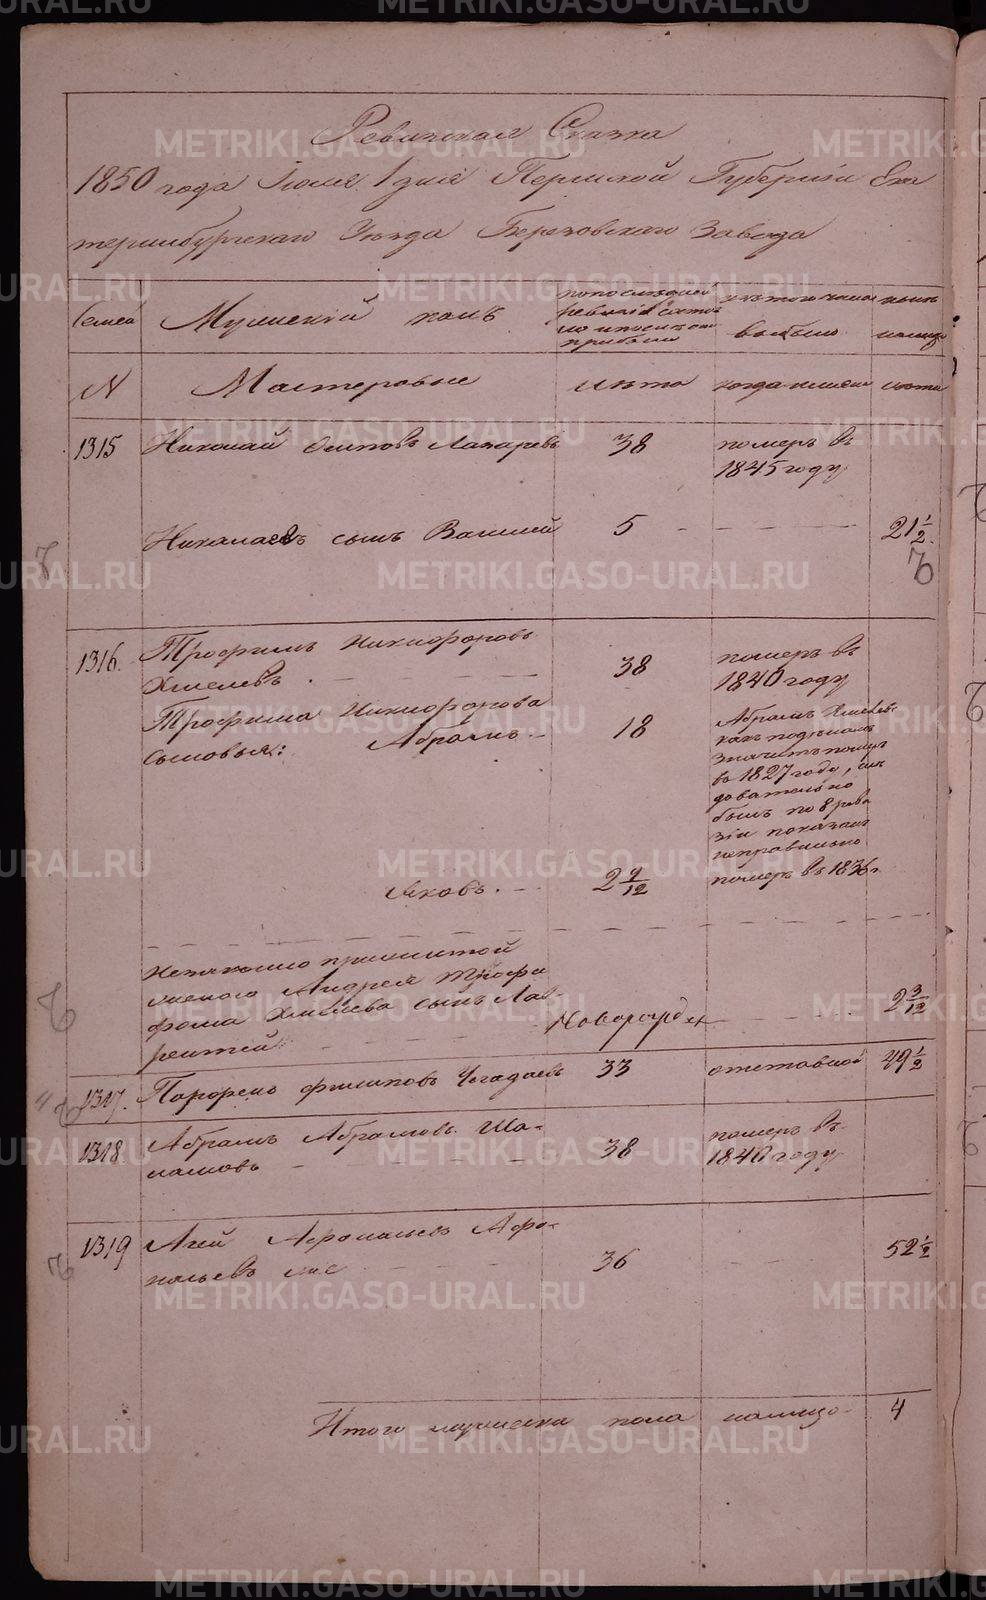 Ревизская Сказка
1850 года Июля 1 дня Пермской Губернии Ека
теринбургскаго Уезда Березовскаго Завода
Семей
Мужеский полъ
по последней
ревизии состоя
ло и после того
прибыло
изъ того числа
выбыло
ныне
налицо
N
Мастеровые
Лѣта
когда именно
лѣта
1315
Николай Осиповъ Лазаревъ
38
померъ въ
1845 году
Николаевъ сынъ Василий
5
21 1/2
1316.
Трофимъ Никифоровъ
Хмелевъ
38
померъ въ
1840 году
Трофима Никифорова
сыновья: Абрамъ
18
Абрамъ Хмелевъ
какъ
значитъ померъ
въ 1827 году, слѣ
довательно
былъ по 8 реви
зіи показанъ
неправильно
Яковъ.
2 9/12
померъ въ 1836 г.
Незаконно прижитой
Андрея Трофи
мова Хмелева сынъ Лав-
рентий
Новорожд
2 3/12
1317.
Парфенъ Филиповъ Чегадаевъ
33
отставной
49 1/2
1318.
Абрамъ Абрамовъ Ша-
ламовъ
38
померъ въ
1840 году
1319
Агей Афонасьевъ Афо-
насьевъ же
36
52 1/2
Итого мужеска пола налицо
4
METRIKI.GASO-URAL.RU